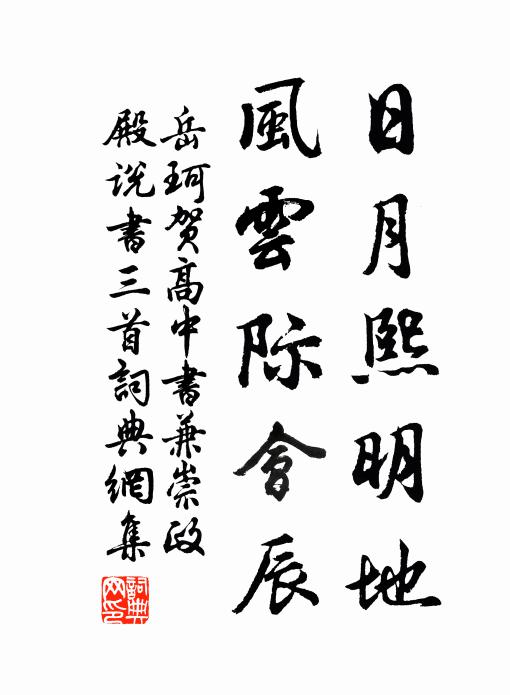 日月熙明地
風雲际會辰
岳珂贺高中書兼崇政
殿说書三首詞典網集
詞典网印